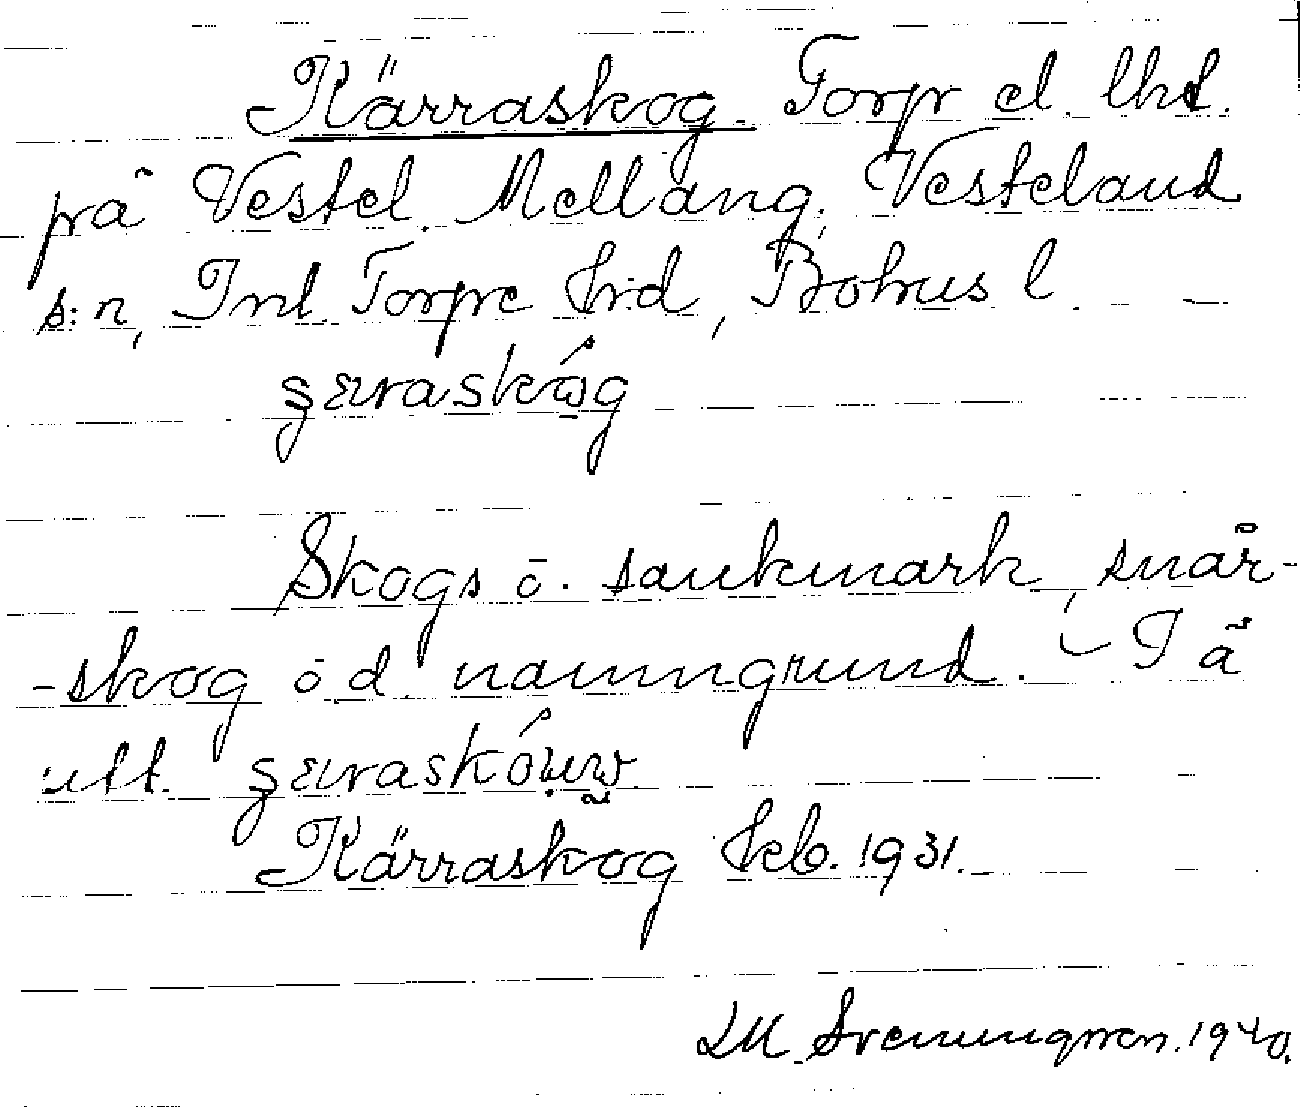 Kärraskog. Torp el. lht.
på Vestel. Mellang, Vesteland
s:n, Inl. Torpe hrd, Bohus l.
Skogs ö. sankmark, snår-
-skog ö d. namngrund. I ä
utt.
Kärraskog kb. 1931.
LM Svenungsson. 1940.